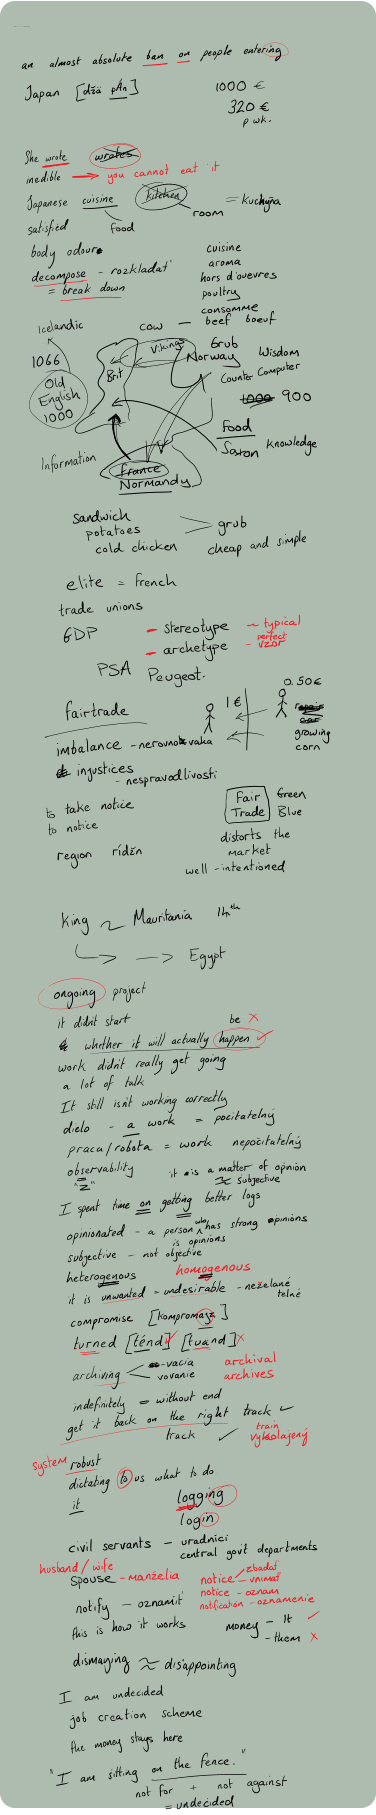 an almost absolute ban on people entering
Japan [džə pÁn]
1000 €
320 €
p wk.
She wrote wrotes
inedible → you cannot eat it
Japanese cuisine kitchen = kuchyňa
food
room
satisfied
body odour
decompose - rozkladať
= break down
cuisine
aroma
hors d'ouevres
poultry
consomme
cow — beef boeuf
Icelandic
1066
Old
English
1000
Brit
Vikings
Grub
Norway
Wisdom
Counter Computer
1000 900
Food
Saxon knowledge
Information
France
Normandy
sandwich
potatoes
cold chicken
grub
cheap and simple
elite = french
trade unions
GDP
- stereotype ~ typical
- archetype - perfect vzor
PSA Peugeot.
fairtrade
1 €
0.50€
repair
car
growing
corn
imbalance - nerovnováha
injustices
- nespravodlivosti
to take notice
to notice
region ridžn
Fair
Trade
Green
Blue
distorts the
market
well-intentioned
King ~ Mauritania 14th
→ → Egypt
ongoing project
it didn't start
be ×
whether it will actually happen ✓
work didn't really get going
a lot of talk
It still isn't working correctly
dielo - a work = počitatelný
praca/robota = work nepočitatelný
observability
"z"
it is a matter of opinion
≈ subjective
I spent time on getting better logs
opinionated - a person who has strong opinions
is opinions
subjective - not objective
heterogenous homogenous
it is unwanted = undesirable - neželané
telné
compromise [kompromajz]
turned [ténd] ✓ [tuand] ×
archiving
-vacia
vovanie
archival
archives
indefinitely = without end
get it back on the right track ✓
track ✓ train
vykolajený
system robust
dictating to us what to do
it
logging
login
civil servants - uradnici
central gov't departments
husband/wife
spouse - manželia
notice zbadať
- vnímať
notice - oznam
notification - oznamenie
notify - oznamiť
this is how it works
money - it ✓
- them ×
dismaying ≈ disappointing
I am undecided
job creation scheme
the money stays here
"I am sitting on the fence."
not for + not against
= undecided